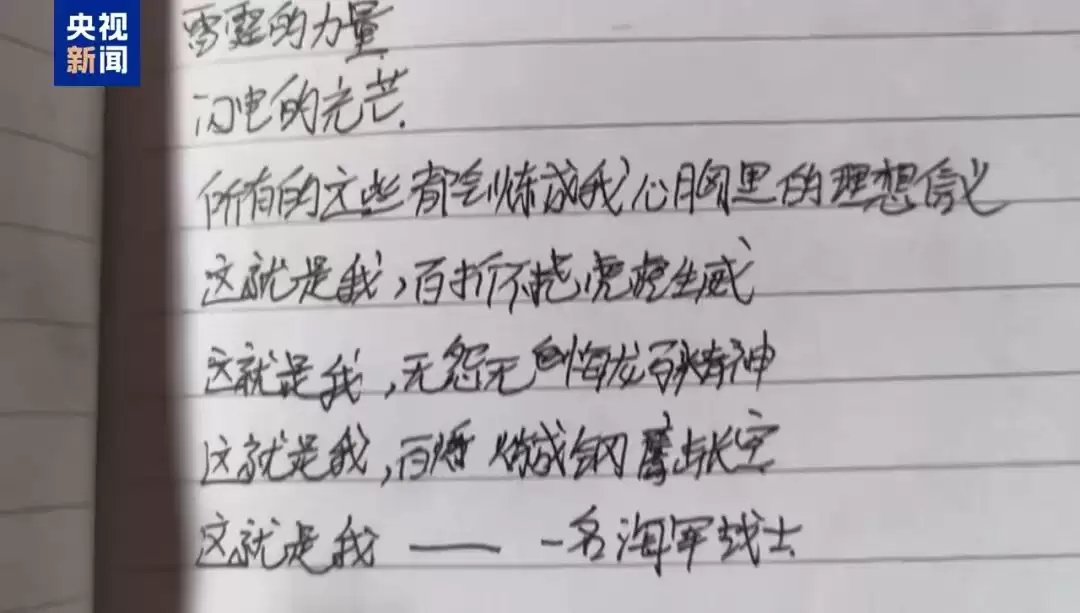 央视
新闻
雷霆的力量
闪电的光芒.
所有的这些都会炼成我心胸里的理想信义
这就是我,百折不挠虎虎生威
这就是我,无怨无悔龙马精神
这就是我,百炼成钢鹰击长空
这就是我——一名海军战士